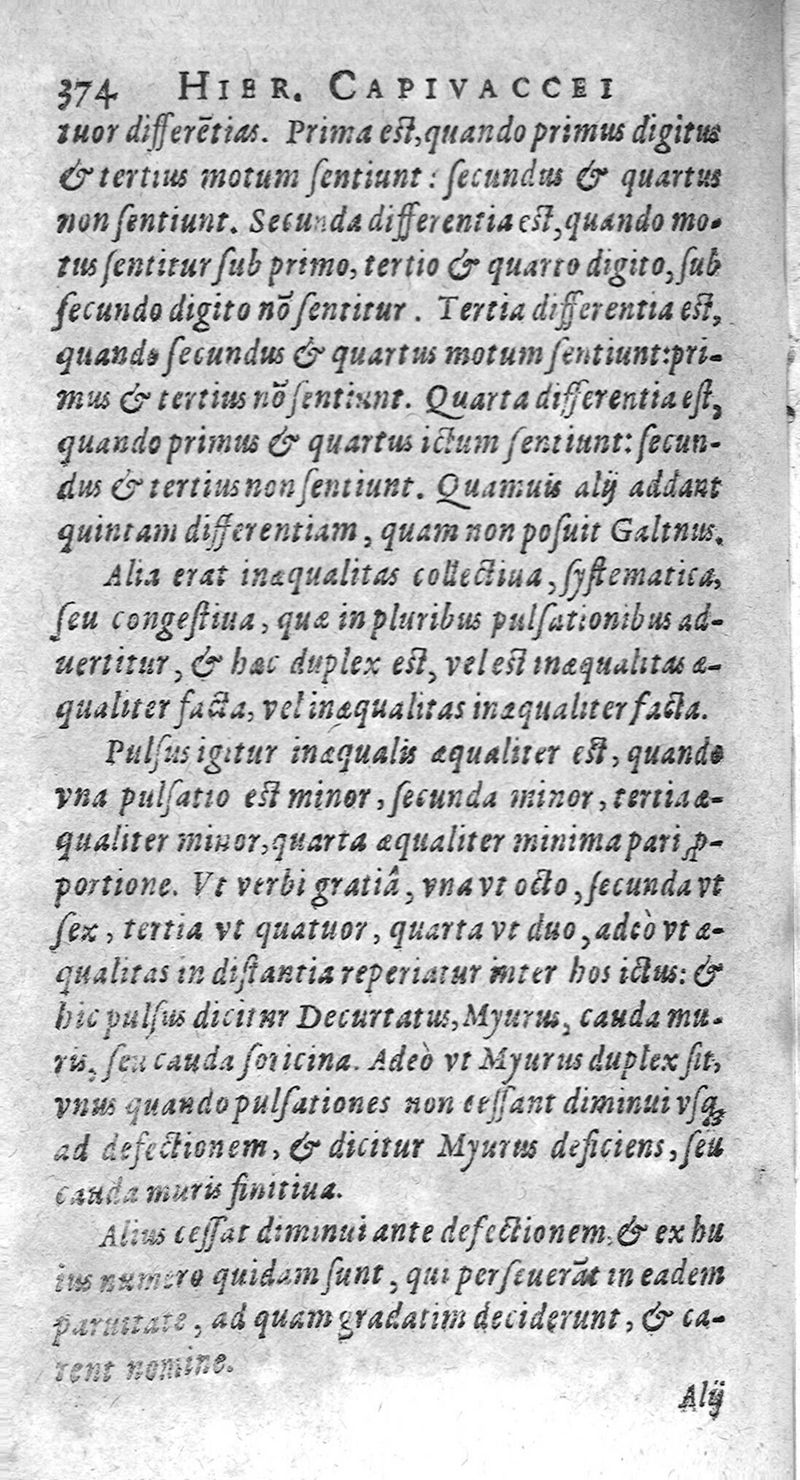 374 HIER. CAPIVACCEI
tuor differētias. Prima est, quando primus digitus
& tertius motum sentiunt: secundus & quartus
non sentiunt. Secunda differentia est, quando mo-
tus sentitur sub primo, tertio & quarto digito, sub
secundo digito nō sentitur. Tertia differentia est,
quando secundus & quartus motum sentiunt: pri-
mus & tertius nō sentiunt. Quarta differentia est,
quando primus & quartus ictum sentiunt: secun-
dus & tertius non sentiunt. Quamuis alij addant
quintam differentiam, quam non posuit Galtnus.
Alia erat inæqualitas collectiua, systematica,
seu congestiua, quæ in pluribus pulsationibus ad-
uertitur, & hæc duplex est, vel est inæqualitas æ-
qualiter facta, vel inæqualitas inæqualiter facta.
Pulsus igitur inæqualis æqualiter est, quando
vna pulsatio est minor, secunda minor, tertia æ-
qualiter minor, quarta æqualiter minima pari ꝓ-
portione. Vt verbi gratiâ, vna vt octo, secunda vt
sex, tertia vt quatuor, quarta vt duo, adeò vt æ-
qualitas in distantia reperiatur inter hos ictus: &
hic pulsus dicitur Decurtatus, Myurus, cauda mu-
ris, seu cauda soricina. Adeò vt Myurus duplex sit,
vnus quando pulsationes non cessant diminui vsq;
ad defectionem, & dicitur Myurus deficiens, seu
cauda muris finitiua.
Alius cessat diminui ante defectionem, & ex hu
ius numero quidam sunt, qui perseuerāt in eadem
paruitate, ad quam gradatim deciderunt, & ca-
rent nomine.
Alij